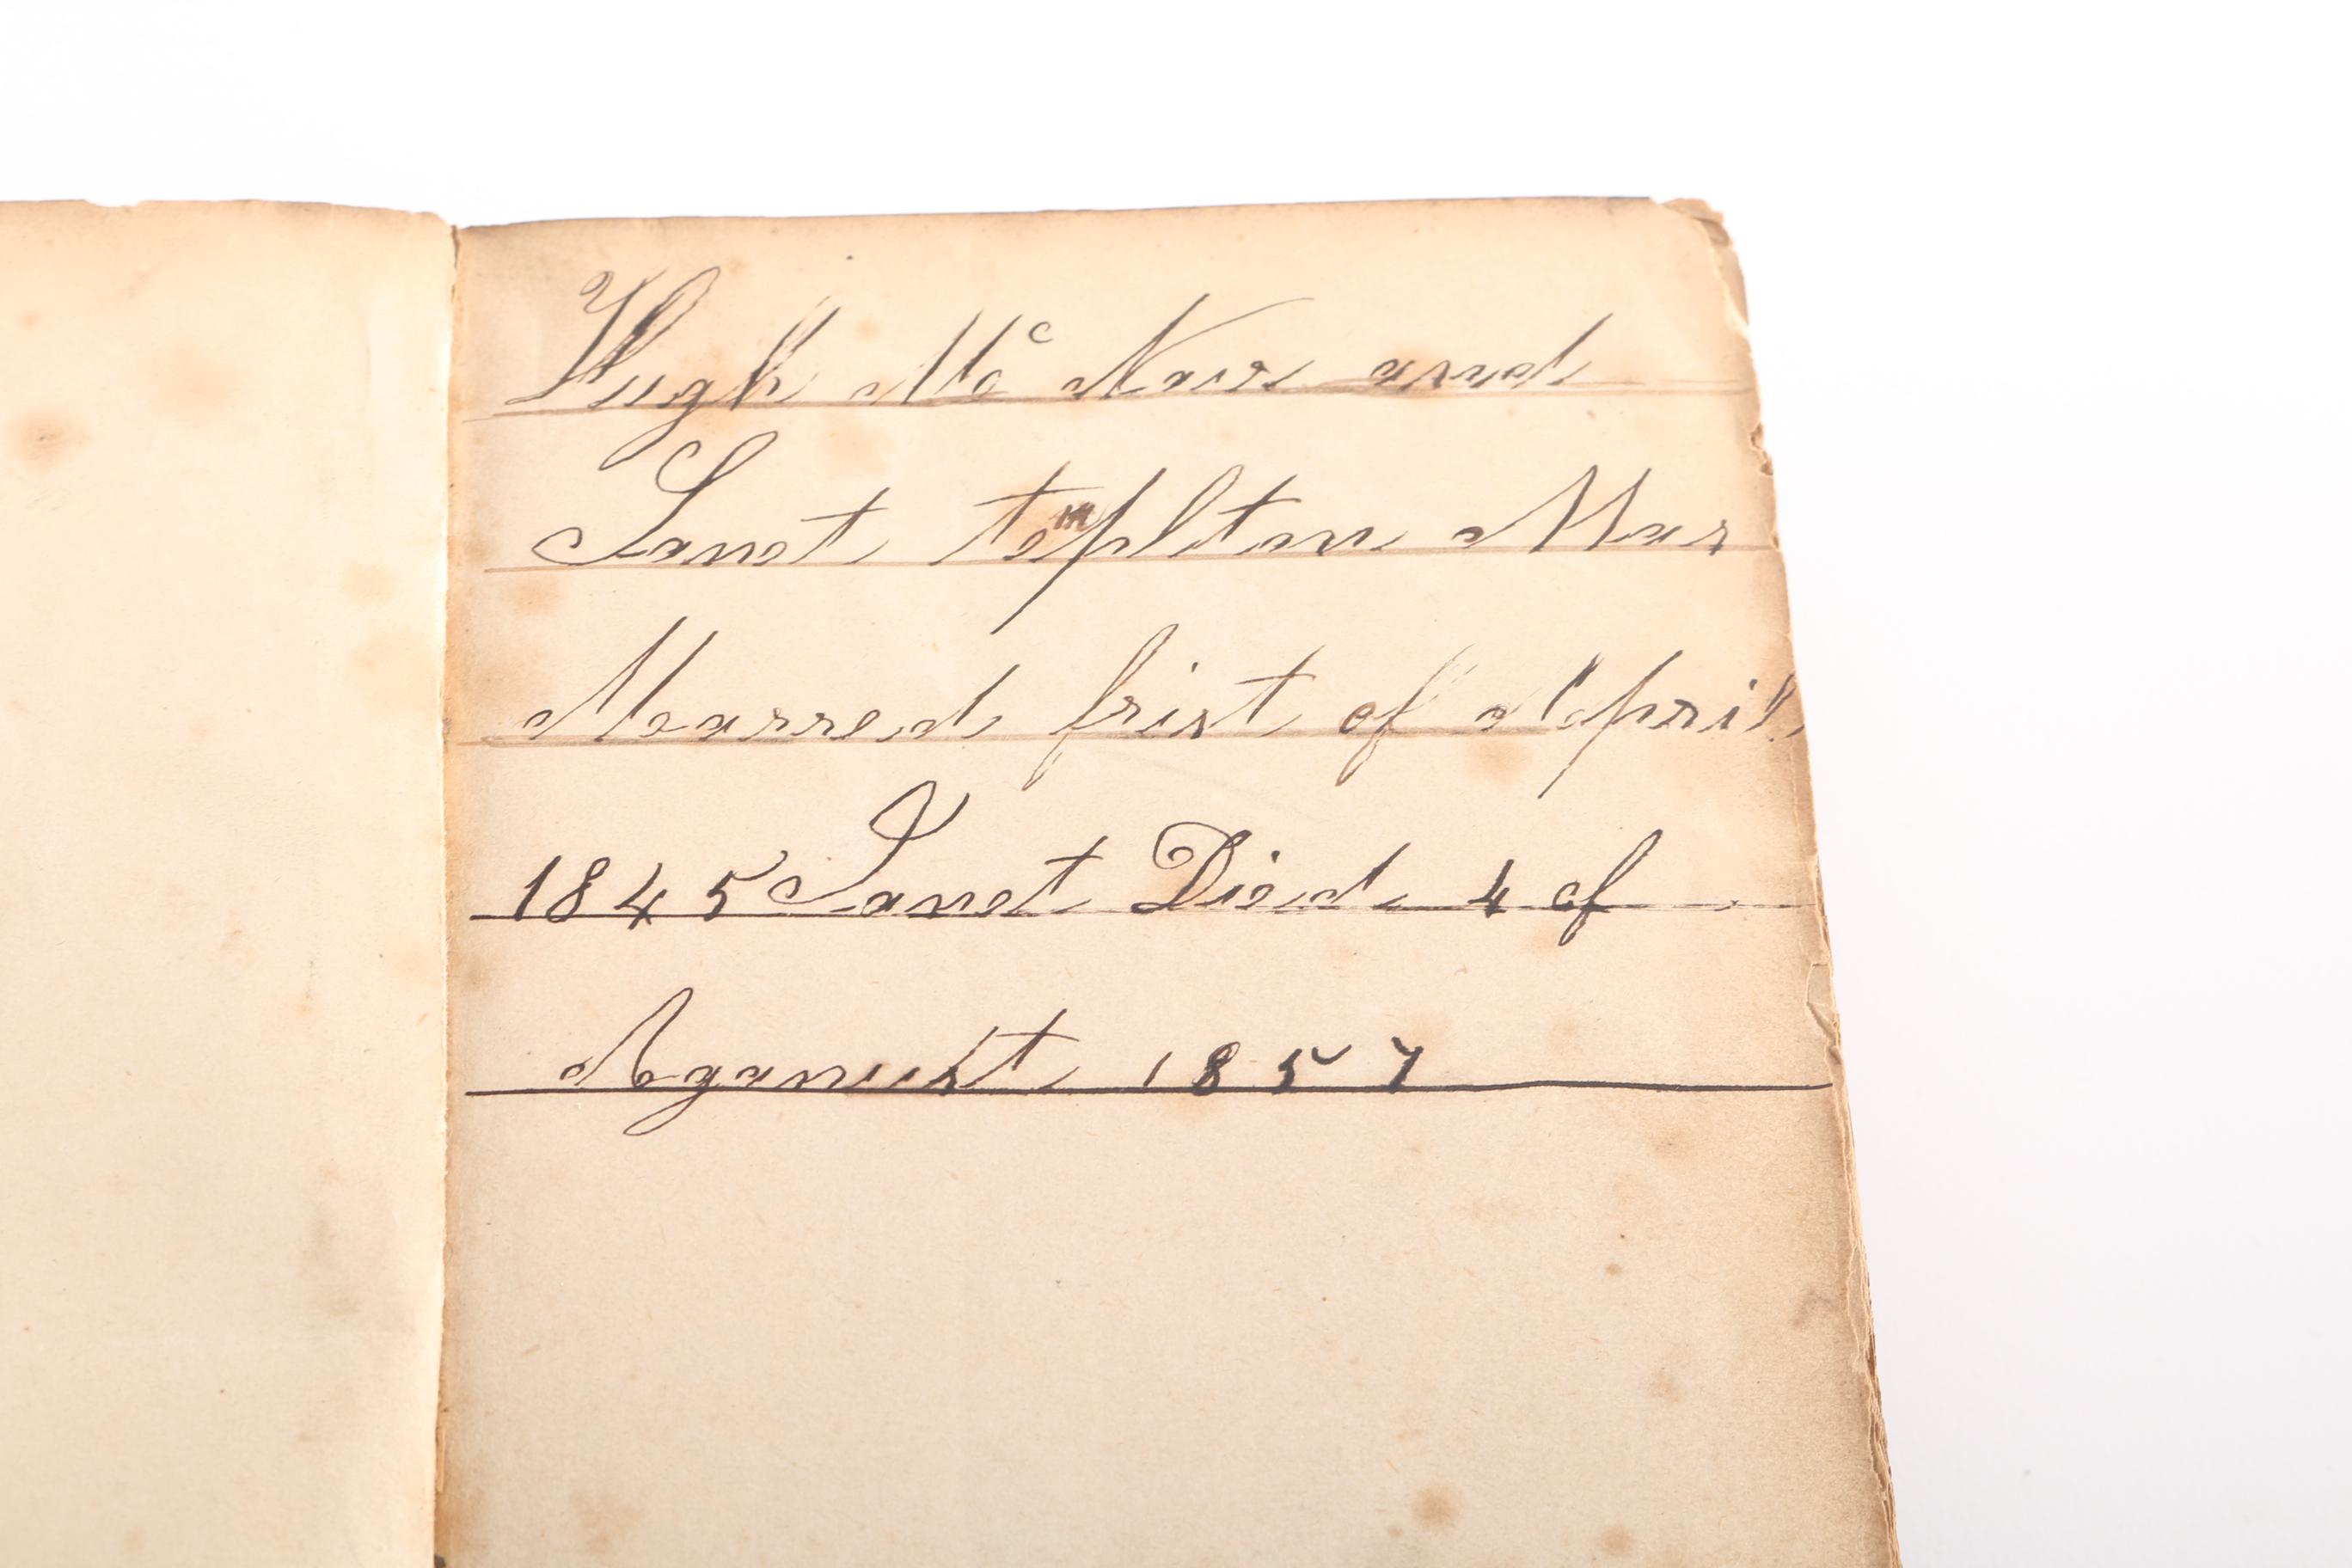 Hugh Mc Nair and
Janet templton Mar
Mearred frist of April
1845 Janet Died 4 of
Agaunist 1857